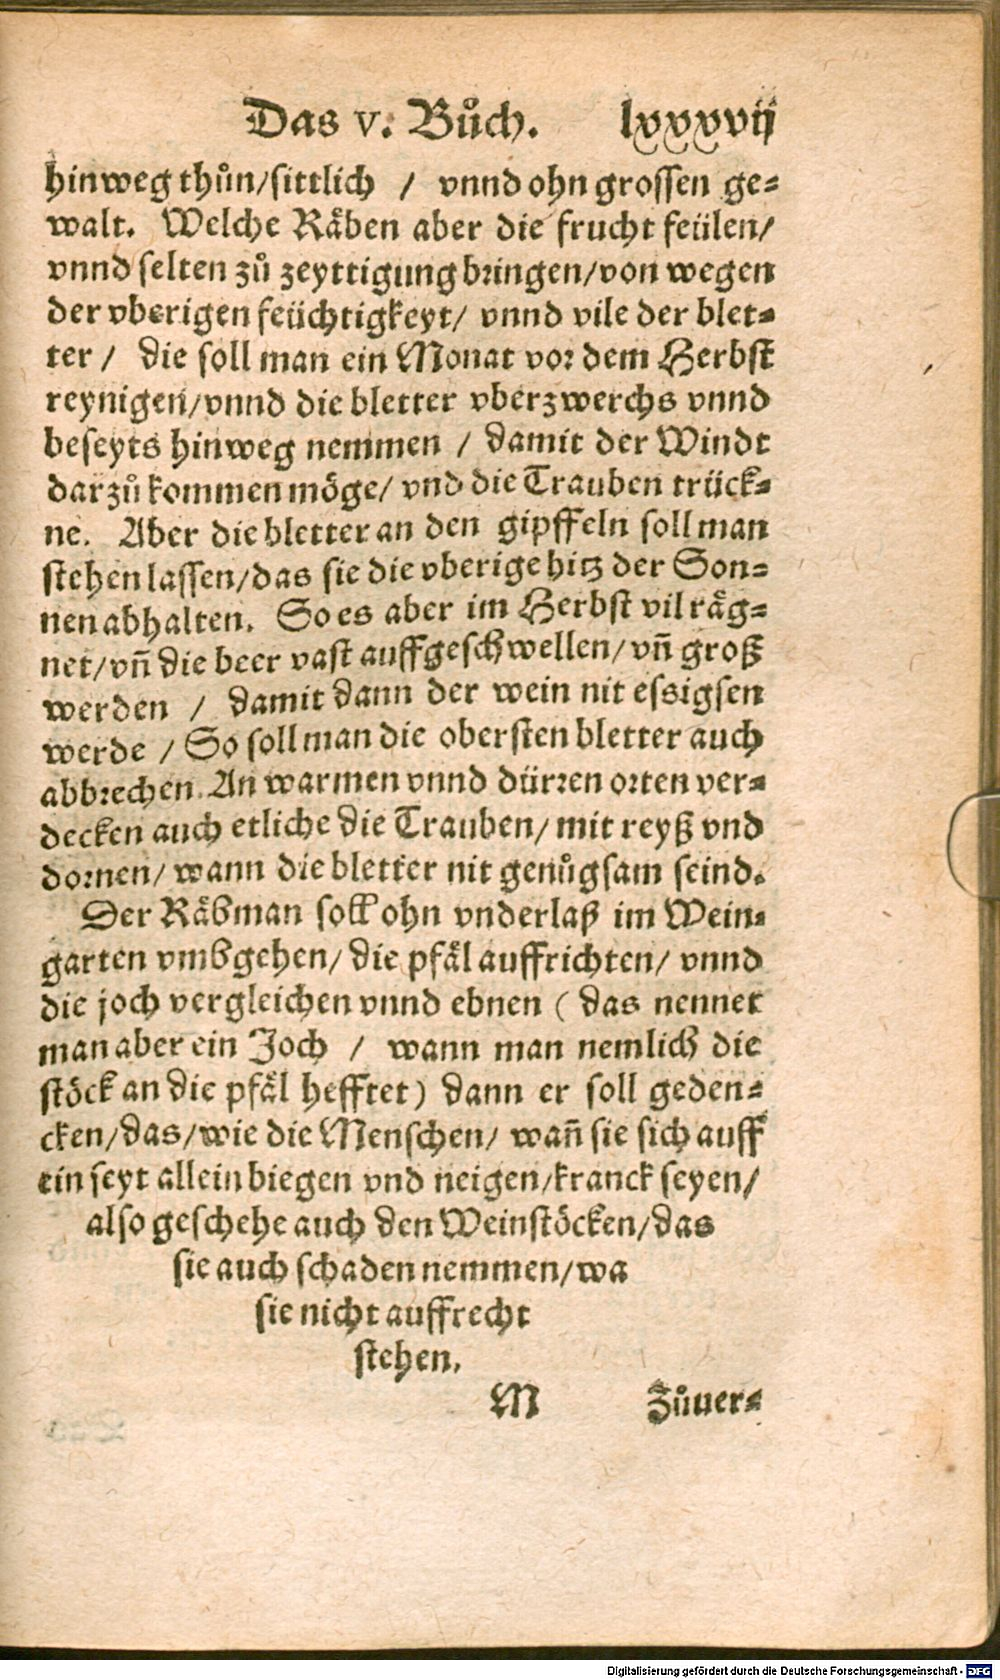 Das v. Bůch. lxxxvij
hinweg thůn/sittlich / vnnd ohn grossen ge-
walt. Welche Räben aber die frucht feülen/
vnnd selten zů zeyttigung bringen/von wegen
der vberigen feüchtigkeyt/ vnnd vile der blet-
ter / die soll man ein Monat vor dem Herbst
reynigen/vnnd die bletter vberzwerchs vnnd
beseyts hinweg nemmen / damit der Windt
darzů kommen möge/ vnd die Trauben trück-
ne. Aber die bletter an den gipffeln soll man
stehen lassen/das sie die vberige hitz der Son-
nen abhalten. So es aber im Herbst vil räg-
net/vñ die beer vast auffgeschwellen/vñ groß
werden / damit dann der wein nit essigsen
werde / So soll man die obersten bletter auch
abbrechen. An warmen vnnd dürren orten ver-
decken auch etliche die Trauben/ mit reyß vnd
dornen/ wann die bletter nit genůgsam seind.
Der Räbman soll ohn vnderlaß im Wein-
garten vmbgehen/ die pfäl auffrichten/ vnnd
die joch vergleichen vnnd ebnen ( das nennet
man aber ein Joch / wann man nemlich die
stöck an die pfäl hefftet) dann er soll geden-
cken/das/wie die Menschen/ wañ sie sich auff
ein seyt allein biegen vnd neigen/kranck seyen/
also geschehe auch den Weinstöcken/das
sie auch schaden nemmen/wa
sie nicht auffrecht
stehen.
M Zůuer-
Digitalisierung gefördert durch die Deutsche Forschungsgemeinschaft - DFG